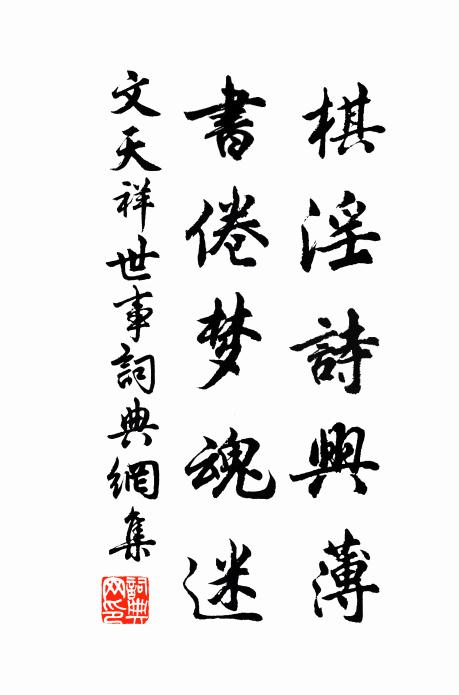 棋淫詩興薄
書倦梦魂迷
文天祥世事詞典網集
詞典
网印